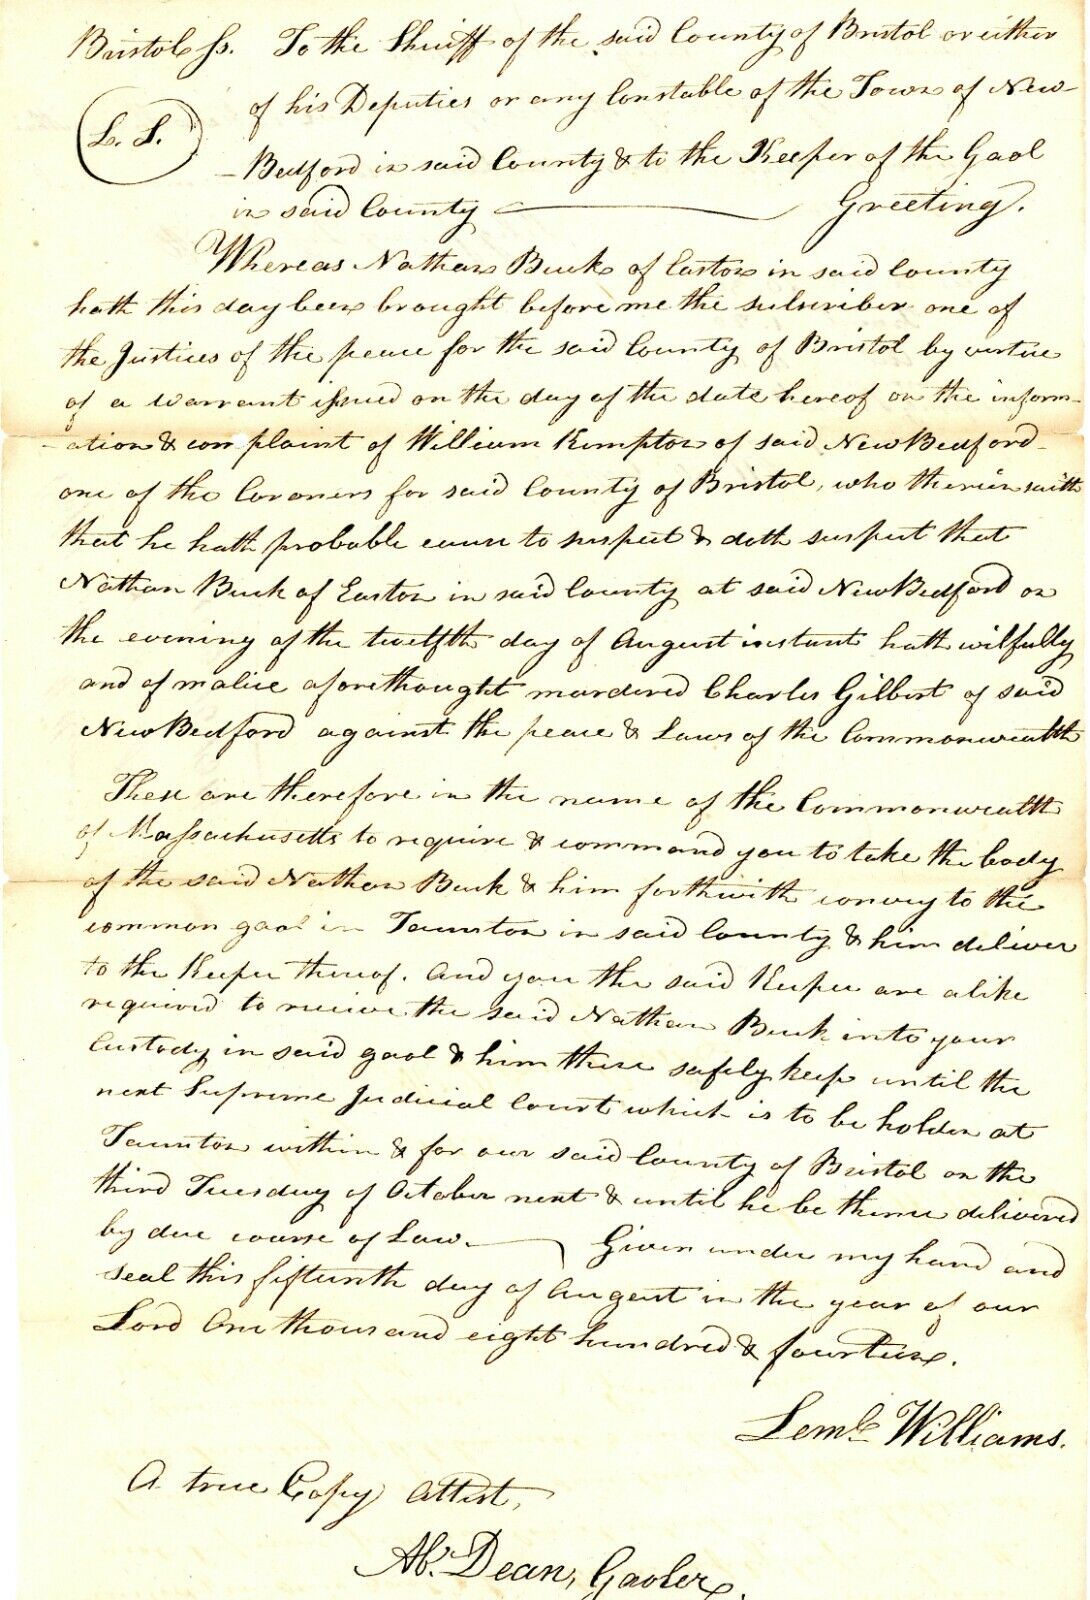 Bristol ss. To the Sheriff of the said County of Bristol or either
of his Deputies or any Constable of the Town of New-
L. S.
-Bedford in said County & to the Keeper of the Gaol
in said County Greeting.
Whereas Nathan Buck of Easton in said County
hath this day been brought before me the subscriber one of
the Justices of the peace for the said County of Bristol by virtue
of a warrant issued on the day of the date hereof on the inform-
-ation & complaint of William Kempton of said New Bedford
one of the Coroners for said County of Bristol, who therein saith
that he hath probable cause to suspect & doth suspect that
Nathan Buck of Easton in said County at said New Bedford on
the evening of the twelfth day of August instant hath wilfully
and of malice aforethought murdered Charles Gilbert of said
New Bedford against the peace & Laws of the Commonwealth
These are therefore in the name of the Commonwealth
of Massachusetts to require & command you to take the body
of the said Nathan Buck & him forthwith convey to the
common gaol in Taunton in said County & him deliver
to the Keeper thereof. And you the said Keeper are alike
required to receive the said Nathan Buck into your
Custody in said gaol & him there safely keep until the
next Supreme Judicial Court which is to be holden at
Taunton within & for our said County of Bristol on the
third Tuesday of October next & until he be thence delivered
by due course of Law. Given under my hand and
seal this fifteenth day of August in the year of our
Lord One thousand eight hundred & fourteen.
Leml. Williams.
A true Copy Attest,
Ab. Dean, Gaoler.